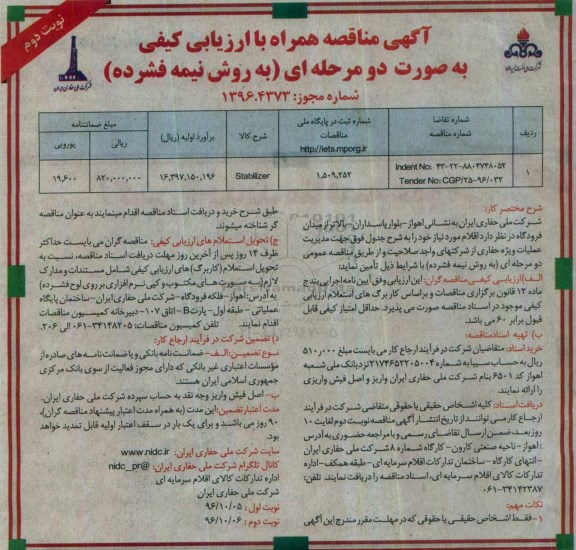 نوبت دوم
آگهی مناقصه همراه با ارزیابی کیفی
به صورت دو مرحله ای (به روش نیمه فشرده)
شماره مجوز: ۱۳۹۶.۴۳۷۳
شرکت ملی نفت ایران
شرکت ملی حفاری ایران
ردیف
شماره تقاضا
شماره مناقصه
شماره ثبت در پایگاه ملی
مناقصات
http://iets.mporg.ir
شرح کالا
برآورد اولیه (ریال)
مبلغ ضمانتنامه
ریالی
یورویی
۱
Indent No: ۴۳-۲۲-۸۸۰۴۷۴۸۰۵۲
Tender No: CGP/۲۵-۹۶/۰۳۲
۱,۵۰۹,۲۵۲
Stabilizer
۱۶,۳۹۷,۱۵۰,۱۹۶
۸۲۰,۰۰۰,۰۰۰
۱۹,۶۰۰
شرح مختصر کار:
شرکت ملی حفاری ایران به نشانی اهواز-بلوار پاسداران-بالاتر از میدان
فرودگاه در نظر دارد اقلام مورد نیاز خود را به شرح جدول فوق جهت مدیریت
عملیات ویژه حفاری از شرکتهای واجد صلاحیت و از طریق مناقصه عمومی
دو مرحله ای (به روش نیمه فشرده) با شرایط ذیل تأمین نماید:
الف)ارزیابی کیفی مناقصه گران: این ارزیابی وفق آیین نامه اجرایی بند ج
ماده ۱۲ قانون برگزاری مناقصات و براساس کاربرگ های استعلام ارزیابی
کیفی موجود در اسناد مناقصه صورت می پذیرد. حداقل امتیاز کیفی قابل
قبول برابر ۶۰ می باشد.
ب) تهیه اسنادمناقصه:
خرید اسناد: متقاضیان شرکت در فرآیند ارجاع کار می بایست مبلغ ۵۱۰،۰۰۰
ریال به حساب سیبا به شماره ۲۱۷۴۶۵۲۲۰۵۰۰۴ نزد بانک ملی شعبه
اهواز کد ۶۵۰۱ بنام شرکت ملی حفاری ایران واریز و اصل فیش واریزی
را ارائه نمایند.
دریافت اسناد: کلیه اشخاص حقیقی یا حقوقی متقاضی شرکت در فرآیند
ارجاع کار می توانند از تاریخ انتشار آگهی مناقصه نوبت دوم لغایت ۱۰
روز بعد، ضمن ارسال تقاضای رسمی و با مراجعه حضوری به آدرس
: اهواز- ناحیه صنعتی کارون- کارگاه شماره ۸ شرکت ملی حفاری ایران
- انتهای کارگاه - ساختمان تدارکات اقلام سرمایه ای- طبقه همکف- اداره
تدارکات کالای اقلام سرمایه ای، اسناد مناقصه را دریافت نمایند. تلفن:
۰۶۱-۳۴۱۴۲۳۸۷
نکات مهم:
۱- فقط اشخاص حقیقی یا حقوقی که در مهلت مقرر مندرج این آگهی
طبق شرح خرید و دریافت اسناد مناقصه اقدام مینمایند به عنوان مناقصه
گر شناخته میشوند.
ج) تحویل استعلام های ارزیابی کیفی: مناقصه گران می بایست حداکثر
ظرف ۱۴ روز پس از آخرین روز مهلت دریافت اسناد مناقصه، نسبت به
تحویل استعلام (کاربرگ) های ارزیابی کیفی شامل مستندات و مدارک
لازم (به صورت های مکتوب و کپی نرم افزاری بر روی لوح فشرده)
به آدرس: اهواز- فلکه فرودگاه - شرکت ملی حفاری ایران- ساختمان پایگاه
عملیاتی - طبقه اول- پارت B- اتاق ۱۰۷- دبیرخانه کمیسیون مناقصات
اقدام نمایند. تلفن کمیسیون مناقصات: ۳۴۱۴۸۲۰۵-۰۶۱ الی ۲۰۶.
د) تضمین شرکت در فرآیند ارجاع کار:
نوع تضمین: الف- ضمانت نامه بانکی و یا ضمانت نامه های صادره از
مؤسسات اعتباری غیر بانکی که دارای مجوز فعالیت از سوی بانک مرکزی
جمهوری اسلامی ایران هستند.
ب- اصل فیش واریز وجه نقد به حساب سپرده شرکت ملی حفاری ایران.
مدت اعتبار تضمین: این مدت (به همراه مدت اعتبار پیشنهاد مناقصه گران)،
۹۰ روز می باشند و برای یک بار در سقف اعتبار اولیه قابل تمدید خواهد
بود.
سایت شرکت ملی حفاری ایران: www.nidc.ir
کانال تلگرام شرکت ملی حفاری ایران: @nidc_pr
اداره تدارکات کالای اقلام سرمایه ای
شرکت ملی حفاری ایران
نوبت اول : ۹۶/۱۰/۰۵
نوبت دوم : ۹۶/۱۰/۰۶